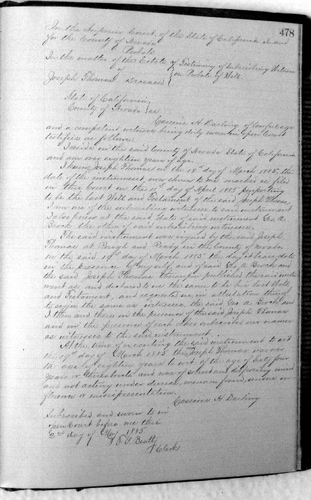 478
In the Superior Court of the State of California in and
for the County of Nevada
Probate
In the matter of the Estate of Testimony of Subscribing Witness
of on Probate of Will
Joseph Thomas Deceased
State of California
County of Nevada ss
H Darling of lawful age
and a competent witness being duly sworn in open Court
testifies as follows:
I reside in the said county of Nevada State of California
and am over eighteen years of age
I knew Joseph Thomas on the 19th day of March 1885, the
date of the instrument now shown to me marked as filed
in this Court on the day of April 1885 purporting
to be the last Will and Testament of the said Joseph Thomas,
I am one of the subscribing witnesses to said instrument
I also knew at the said date of said instrument Geo A
Brock the other of said subscribing witnesses.
The said instrument was signed by the said Joseph
Thomas at Rough and Ready in the county of Nevada
on the said 19th day of March 1885 the day it bears date
in the presence of myself and of said Geo A Brock and
the said Joseph Thomas thereupon published the said instru
ment as and declared to us the same to be his last Will
and Testament, and requested us in attestation thereof
to sign the same as witnesses. The said Geo A Brock and
I then and there in the presence of the said Joseph Thomas
and in the presence of each other subscribed our names
as witnesses to the said instrument.
At the time of executing the said instrument to wit
the 19th day of March 1885 the said Joseph Thomas was over
the age of eighteen years to wit of the age of sixty four
years or thereabouts and was of sound and disposing mind
and not acting under duress, menace, fraud, undue in
fluence or misrepresentation.
H Darling
Subscribed and sworn to in
open Court before me this
2nd day of May 1885
Beatty
Clerk